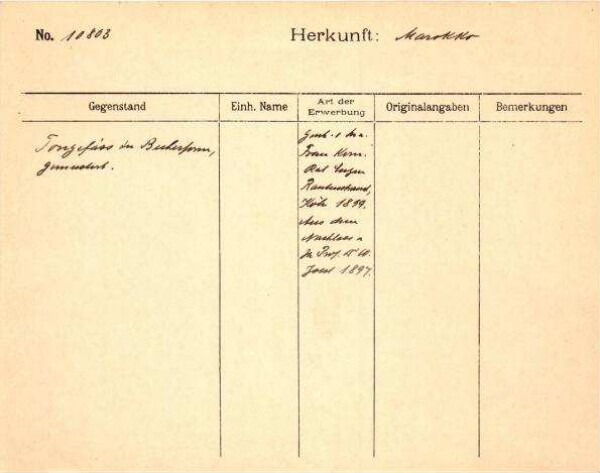 No. 10803 Herkunft: Marokko
Gegenstand Einh. Name Art der Erwerbung Originalangaben Bemerkungen
Tongefäss in Becherform,
gemustert.
Frau Kom.
Rat Eugen
Rautenstrauch,
Köln 1899.
Aus dem
Nachlass
Prof. Dr. W.
Joest 1897.